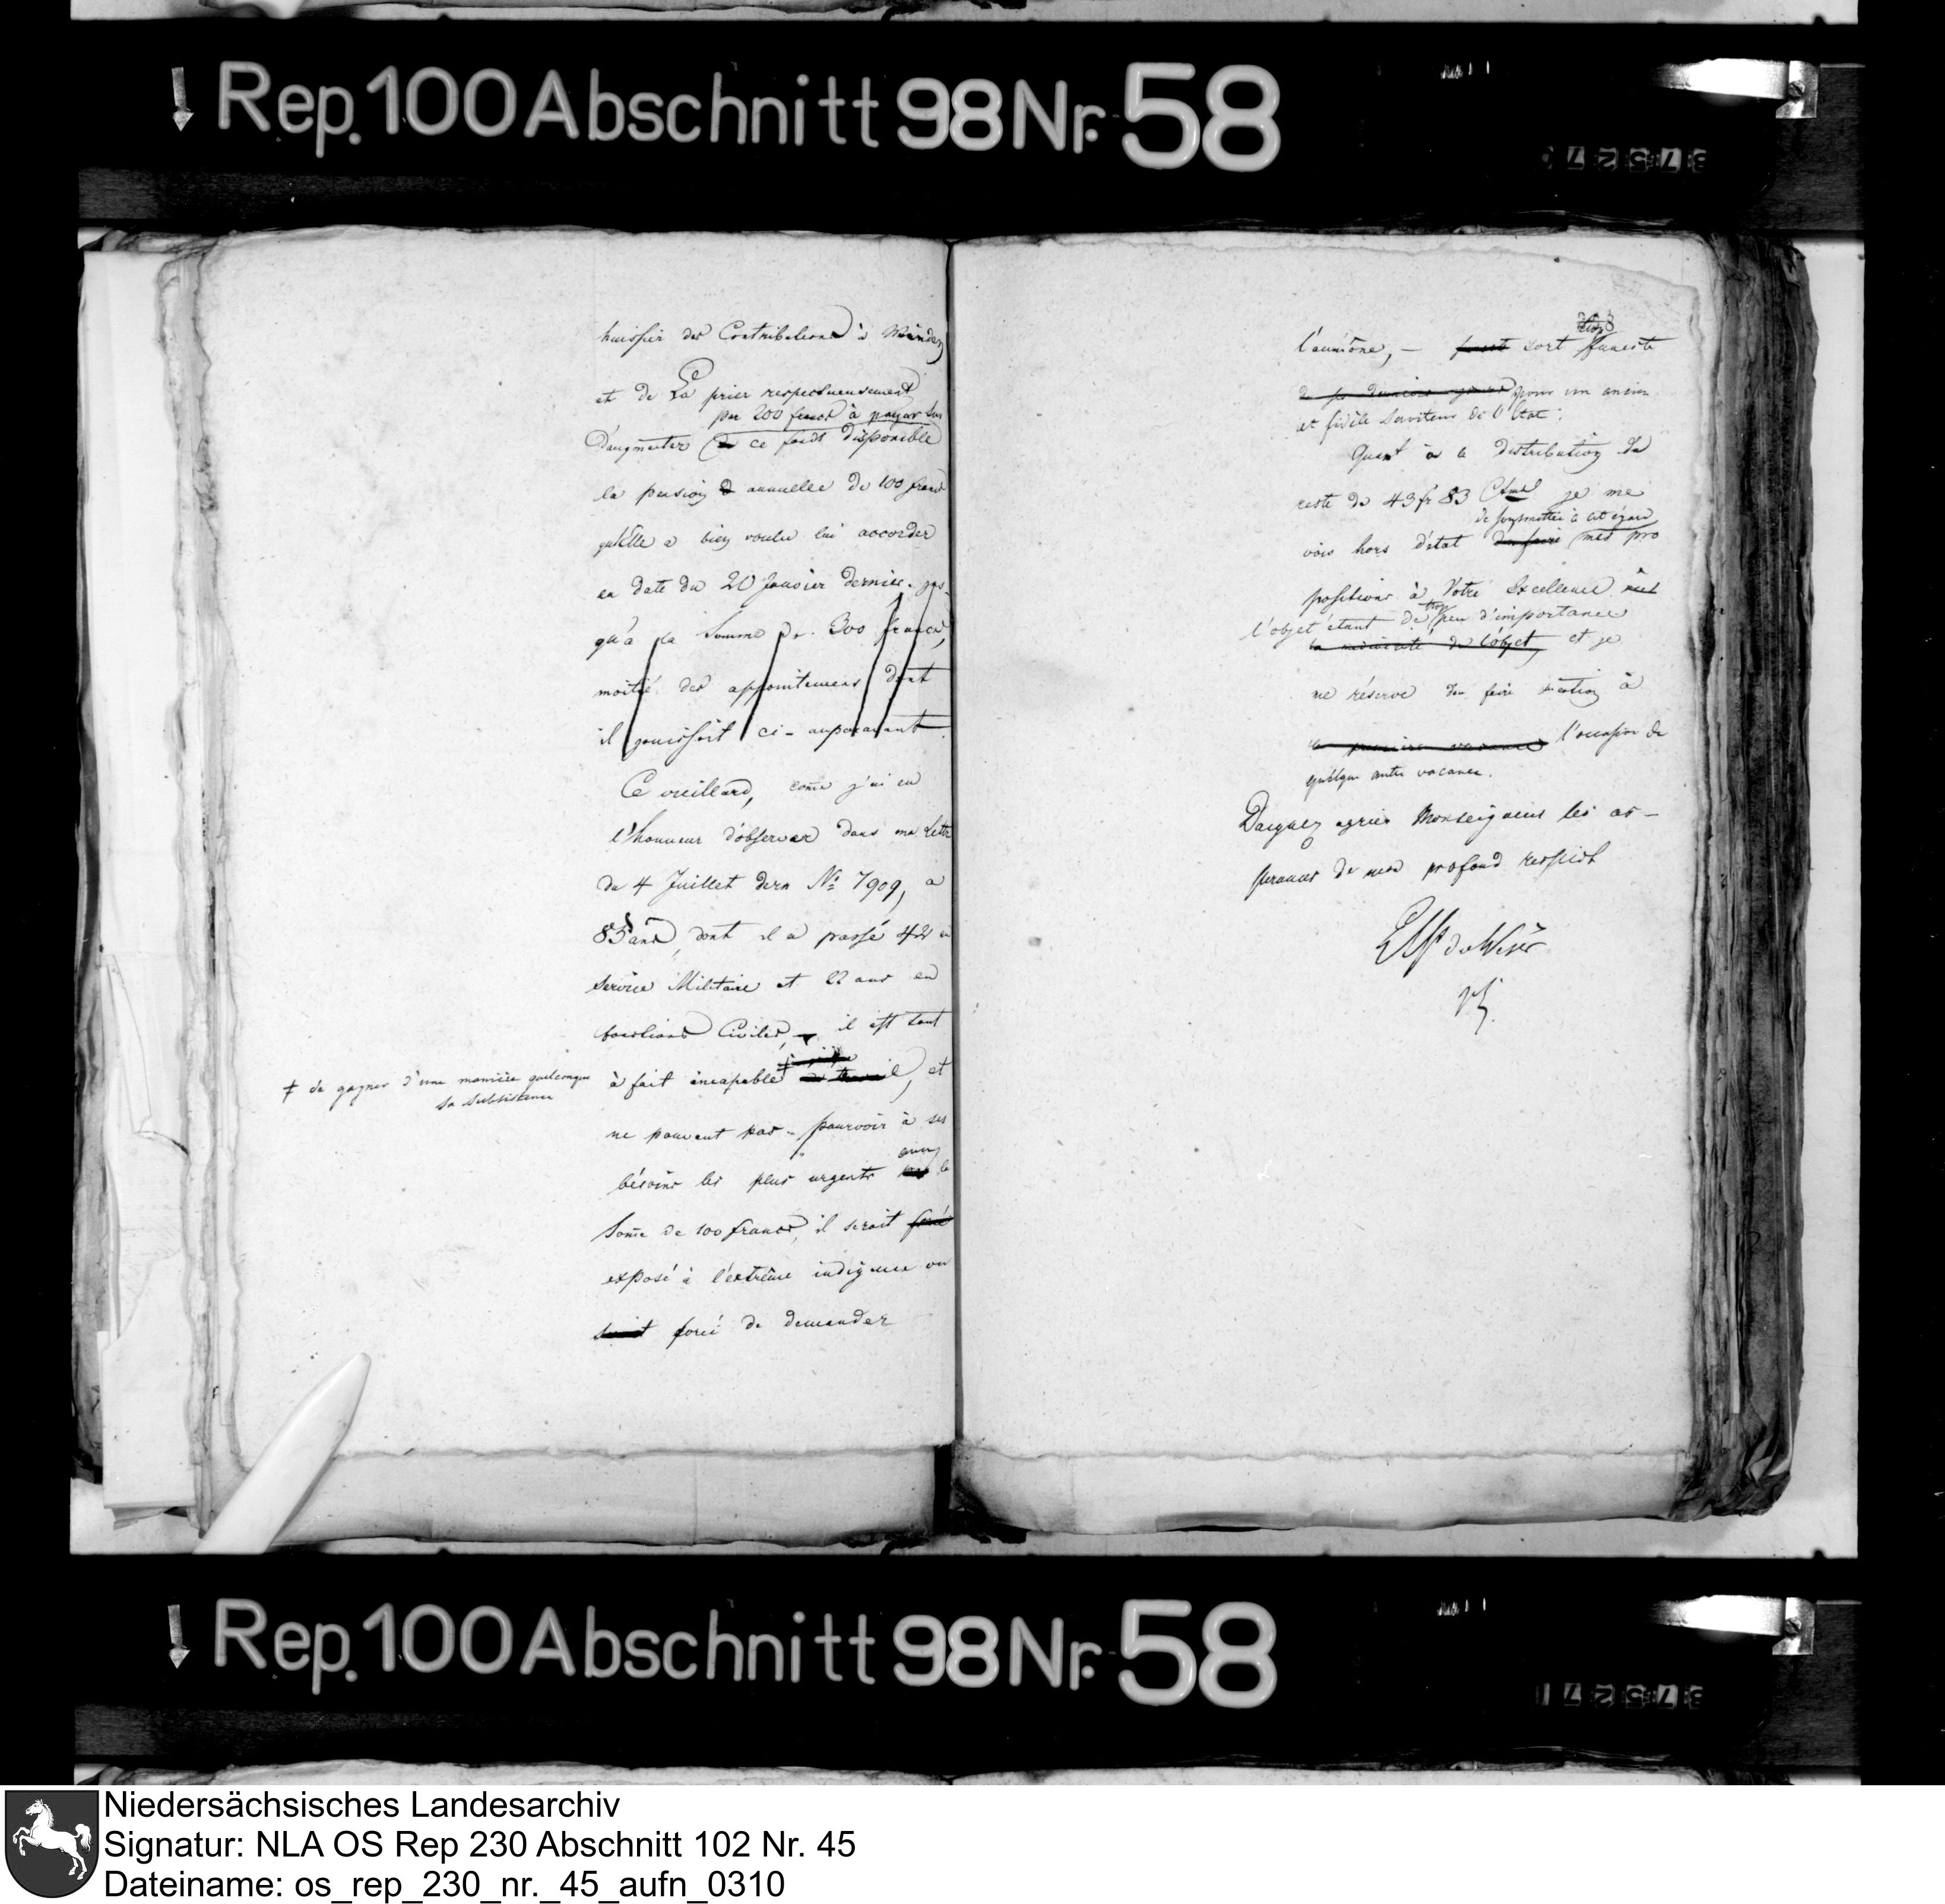 Rep. 100 Abschnitt 98 Nr. 58
huissier des Contributions à Minden
et de La prier respectueusement
par 200 francs à payer sur
D'augmenter de ce fonds disponible
la pension annuelle de 100 francs
qu'Elle a bien voulu lui accorder
en date du 20 Janvier dernier jus-
qu'à la Somme de 300 francs,
moitié des appointemens dont
il jouissoit ci-auparavant.
Ce vieillard, come j'ai eu
l'honneur d'observer dans ma Lettre
du 4 Juillet dern No 7909, a
85 ans, dont il a passé 42 en
service Militaire et 22 ans en
fonctions Civiles, il est tout
à fait incapable et
‡ de gagner d'une manière quelconque
sa subsistance
ne pouvant pas pourvoir à ses
avec
bésoins les plus urgents la
Some de 100 francs, il serait forcé
exposé à l'extrême indigence ou
forcé de demander
l'aumône, — sort funeste
pour un ancien
et fidèle Serviteur de l'Etat.
Quant à la distribution du
reste de 43 fr 83 Ctmes je me
de soumettre à cet égard
vois hors d'état d'en faire mes pro
positions à Votre Excellence
l'objet étant de trop peu d'importance
la médiocrité de l'objet, et je
me réserve d'en faire à
la première vacance l'occasion de
quelque autre vacance.
Daignez agréer Monseigneur les as-
surances de mon profond respect
du Weser
Rep. 100 Abschnitt 98 Nr. 58
Niedersächsisches Landesarchiv
Signatur: NLA OS Rep 230 Abschnitt 102 Nr. 45
Dateiname: os_rep_230_nr._45_aufn_0310